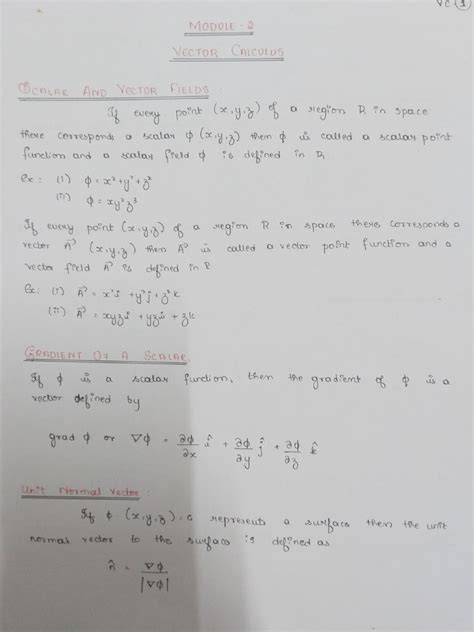 VC (1)
MODULE - 2
VECTOR CALCULUS
SCALAR AND VECTOR FIELDS :
If every point (x,y,z) of a region R in space
there corresponds a scalar ϕ (x,y,z) then ϕ is called a scalar point
function and a scalar field ϕ is defined in R.
Ex : (i) ϕ = x² + y² + z²
(ii) ϕ = xy²z³
If every point (x,y,z) of a region R in space there corresponds a
vector A⃗ (x,y,z) then A⃗ is called a vector point function and a
vector field A⃗ is defined in R
Ex: (i) A⃗ = x²i + y²j + z²k
(ii) A⃗ = xyzi + yzj + zk
GRADIENT OF A SCALAR.
If ϕ is a scalar function, then the gradient of ϕ is a
vector defined by
grad ϕ or ∇ϕ = ∂ϕ/∂x î + ∂ϕ/∂y ĵ + ∂ϕ/∂z k̂
Unit Normal Vector :
If ϕ (x,y,z) = c represents a surface then the unit
normal vector to the surface is defined as
n̂ = ∇ϕ/|∇ϕ|